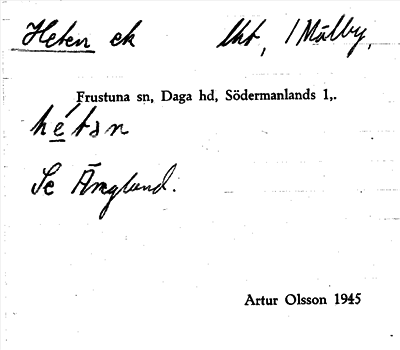 Heten ek lht, 1 Mälby,
Frustuna sn, Daga hd, Södermanlands l,.
hétən
Se Ängland.
Artur Olsson 1945